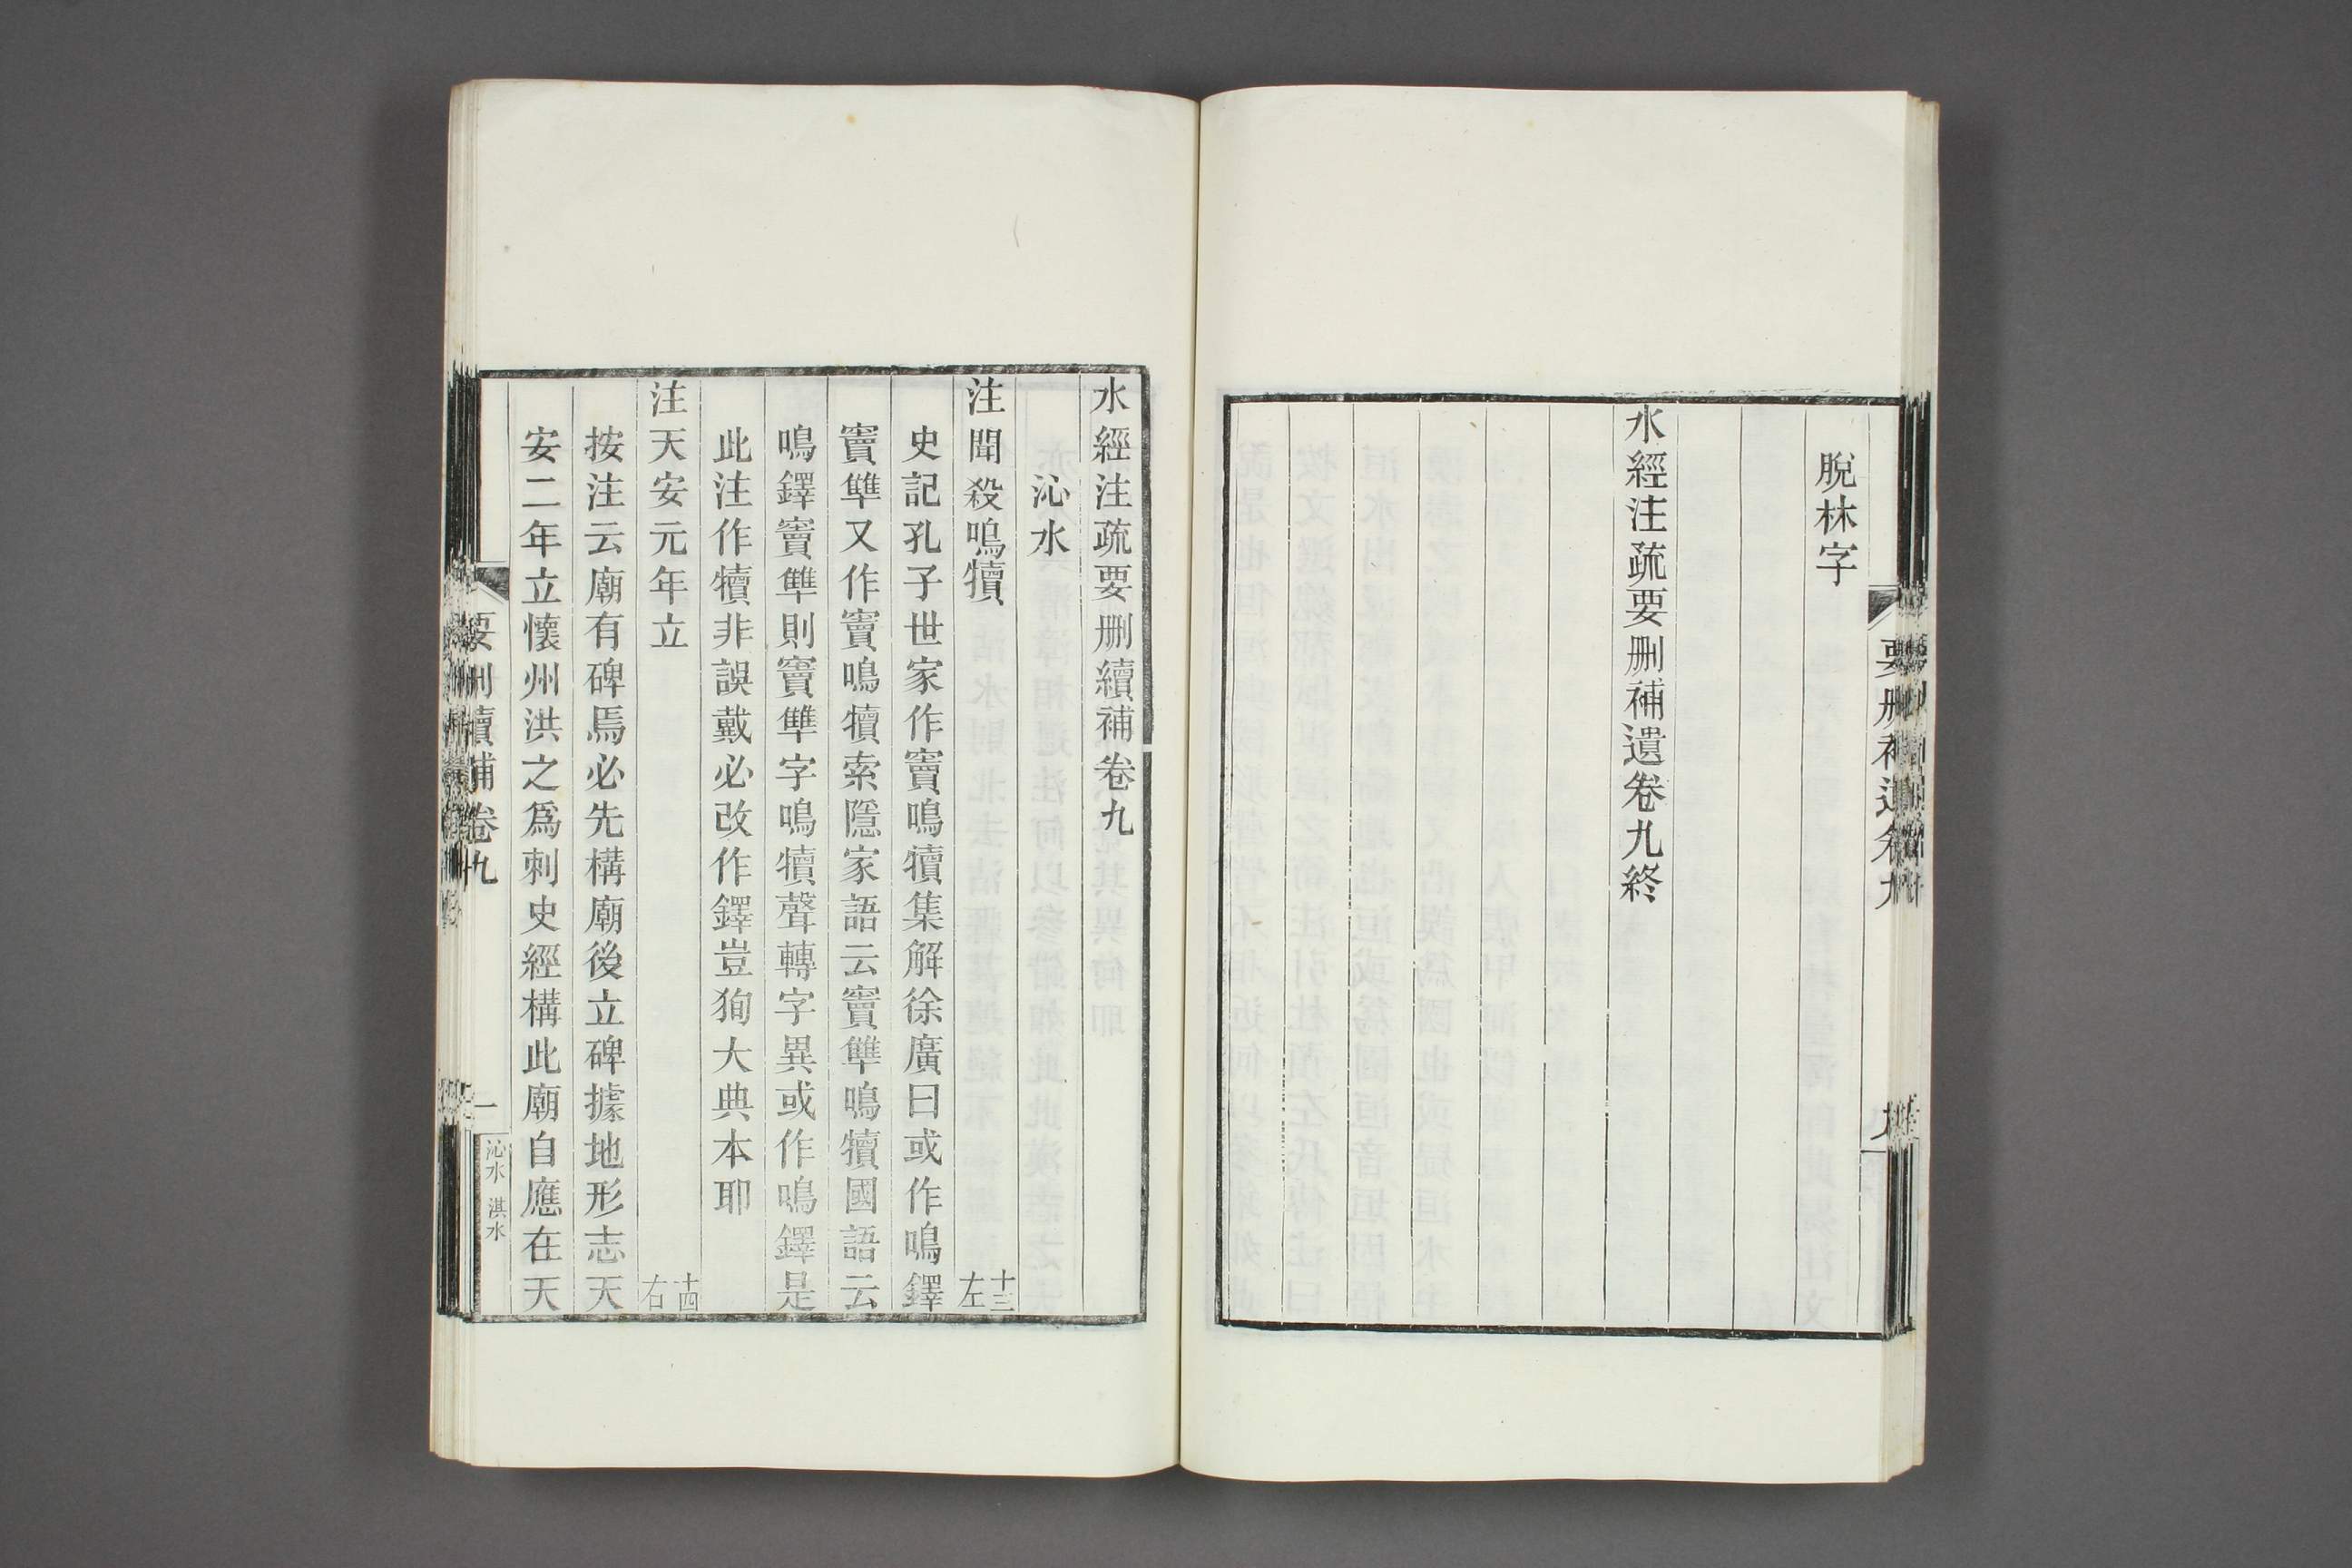 脫林字
水經注疏要删補遺卷九終
水經注疏要删續補卷九
沁水
注聞殺鳴犢 十三左
史記孔子世家作竇鳴犢集解徐廣曰或作鳴鐸
竇犨又作竇鳴犢索隱家語云竇犨鳴犢國語云
鳴鐸竇犨則竇犨字鳴犢聲轉字異或作鳴鐸是
此注作犢非誤戴必改作鐸豈狥大典本耶
注天安元年立 十四右
按注云廟有碑焉必先構廟後立碑據地形志天
安二年立懷州洪之爲刺史經構此廟自應在天
要删續補卷九
一
沁水 淇水